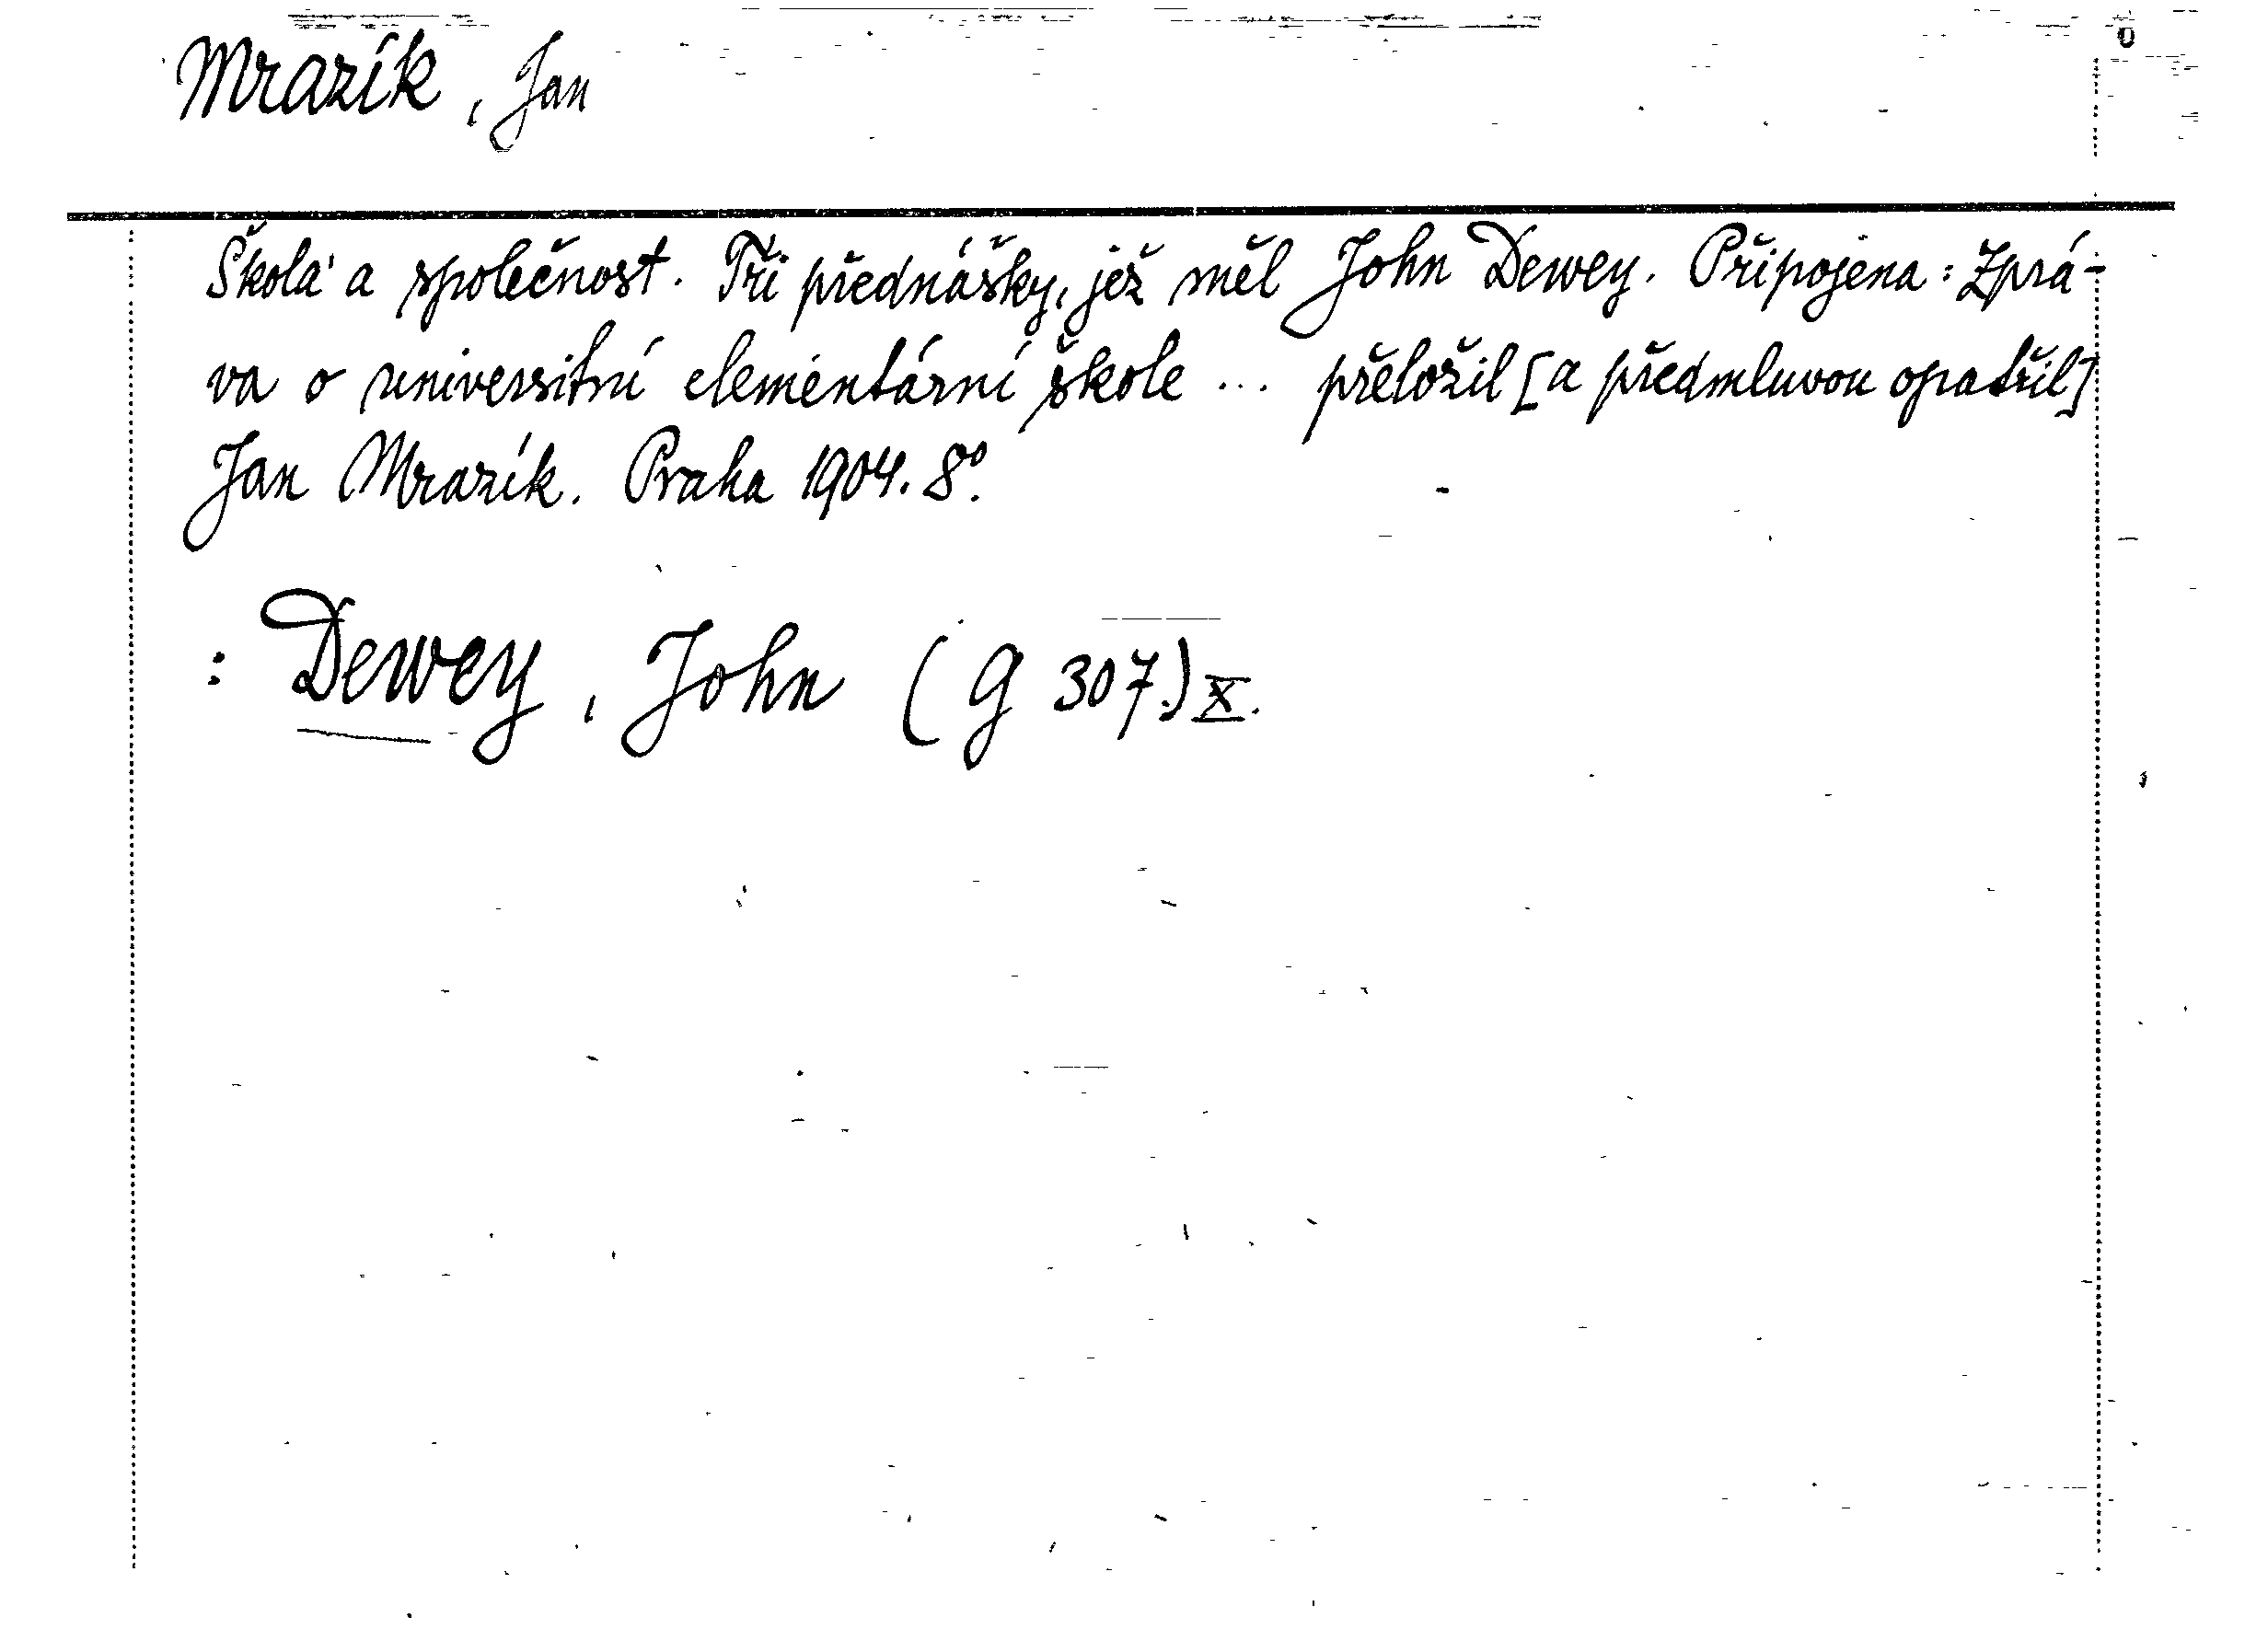 Mrazík, Jan
Škola a společnost. Tři přednášky, jež měl John Dewey. Připojena: Zprá-
va o universitní elementární škole ... přeložil [a předmluvou opatřil]
Jan Mrazík. Praha 1904. 8°.
: Dewey, John (G 307.) X.